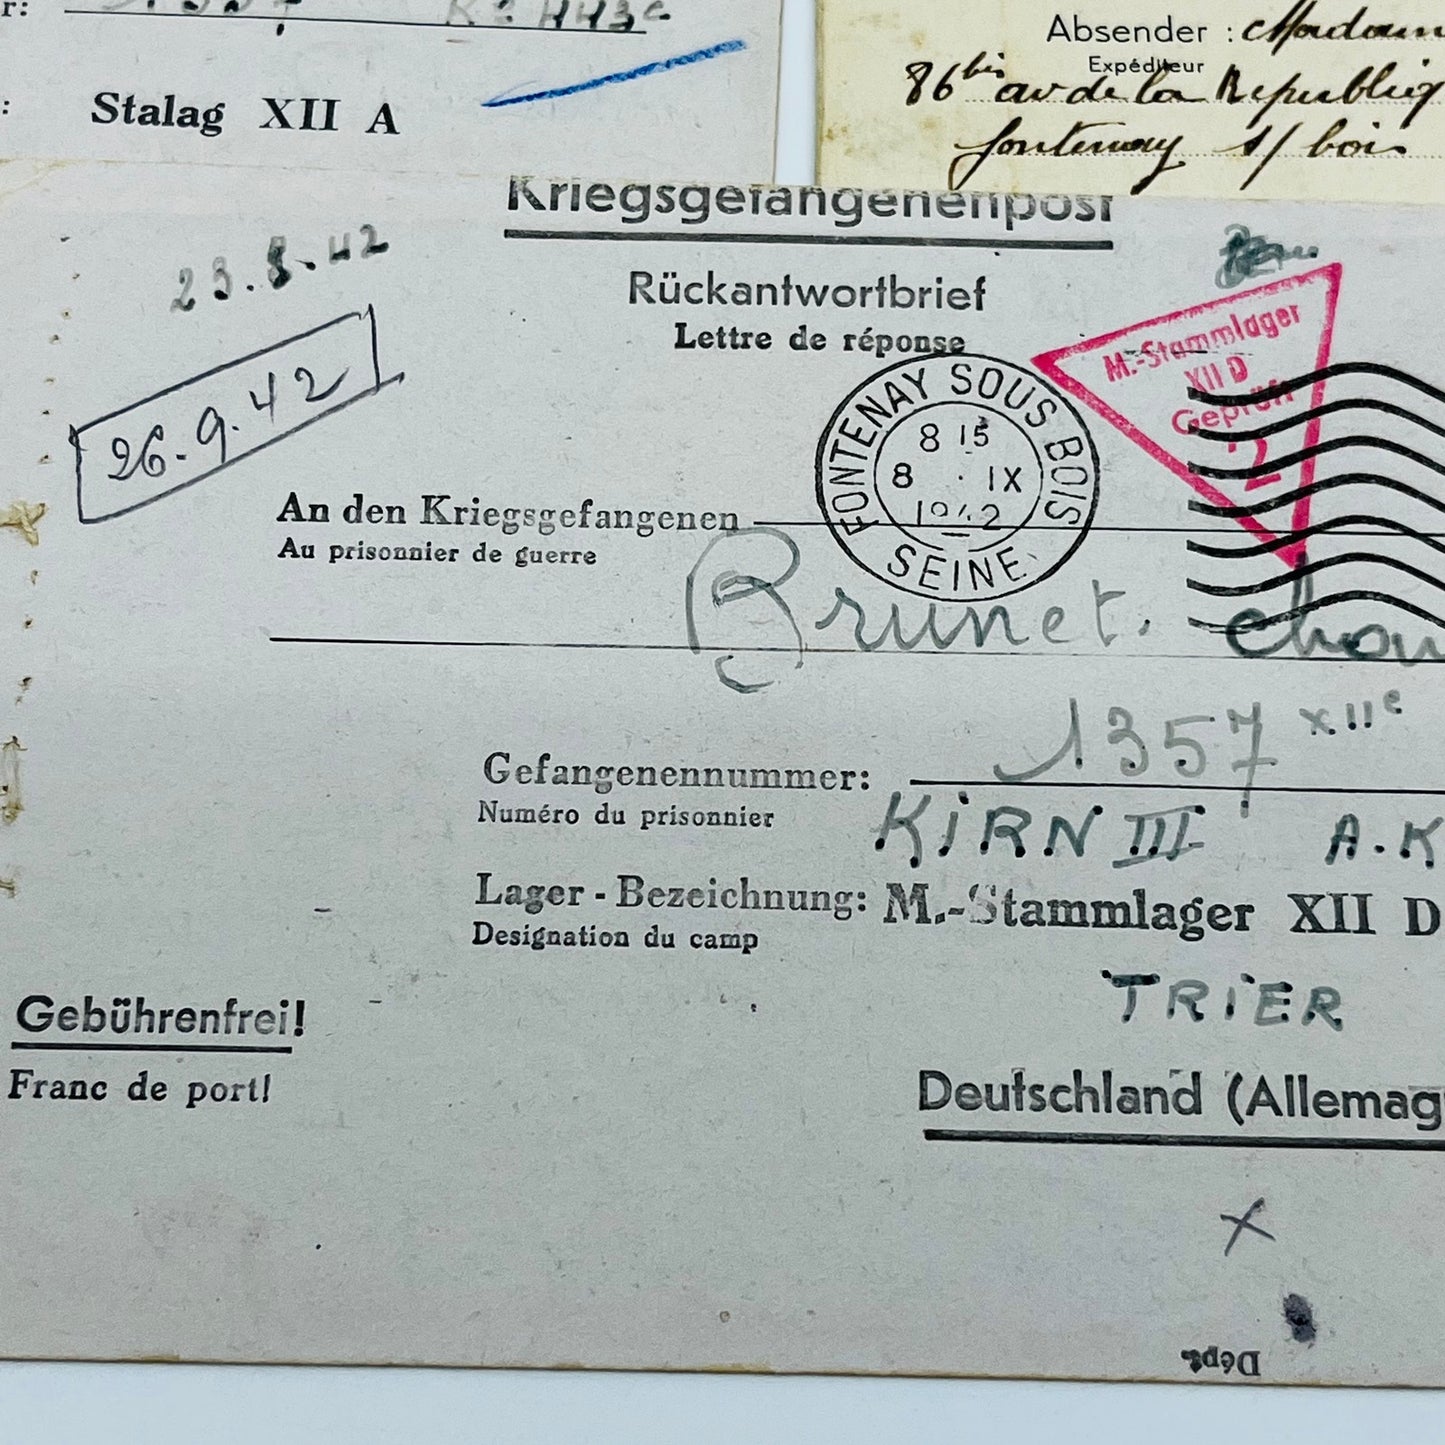 r:
1357
:
Stalag XII A
Absender :
Expéditeur
86 bis av de la Republiq
fontenay s/ bois
Kriegsgefangenenpost
23.8.42
Rückantwortbrief
Lettre de réponse
M.-Stammlager
XII D
Geprüft
2
26.9.42
FONTENAY SOUS BOIS
8 15
8 · IX
1942
SEINE
An den Kriegsgefangenen
Au prisonnier de guerre
Brunet.
1357 XIIe
Gefangenennummer:
Numéro du prisonnier
KiRN III A.K
Lager-Bezeichnung: M.-Stammlager XII D
Designation du camp
TRiER
Gebührenfrei!
Franc de port!
Deutschland (Allemag
x
Dépt.